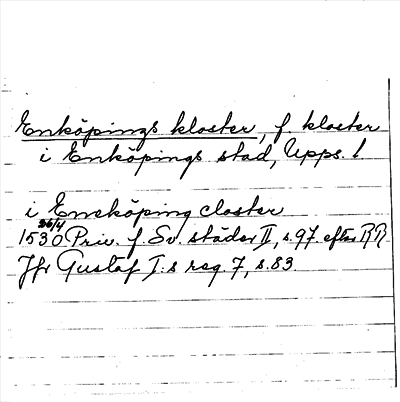 Enköpings kloster, f. kloster
i Enköpings stad, Upps. l
i Eneköping closter
26/4
1530 Priv. f. Sv. städer II, s. 97. efter RR
Jfr Gustaf I:s reg. 7, s. 83.